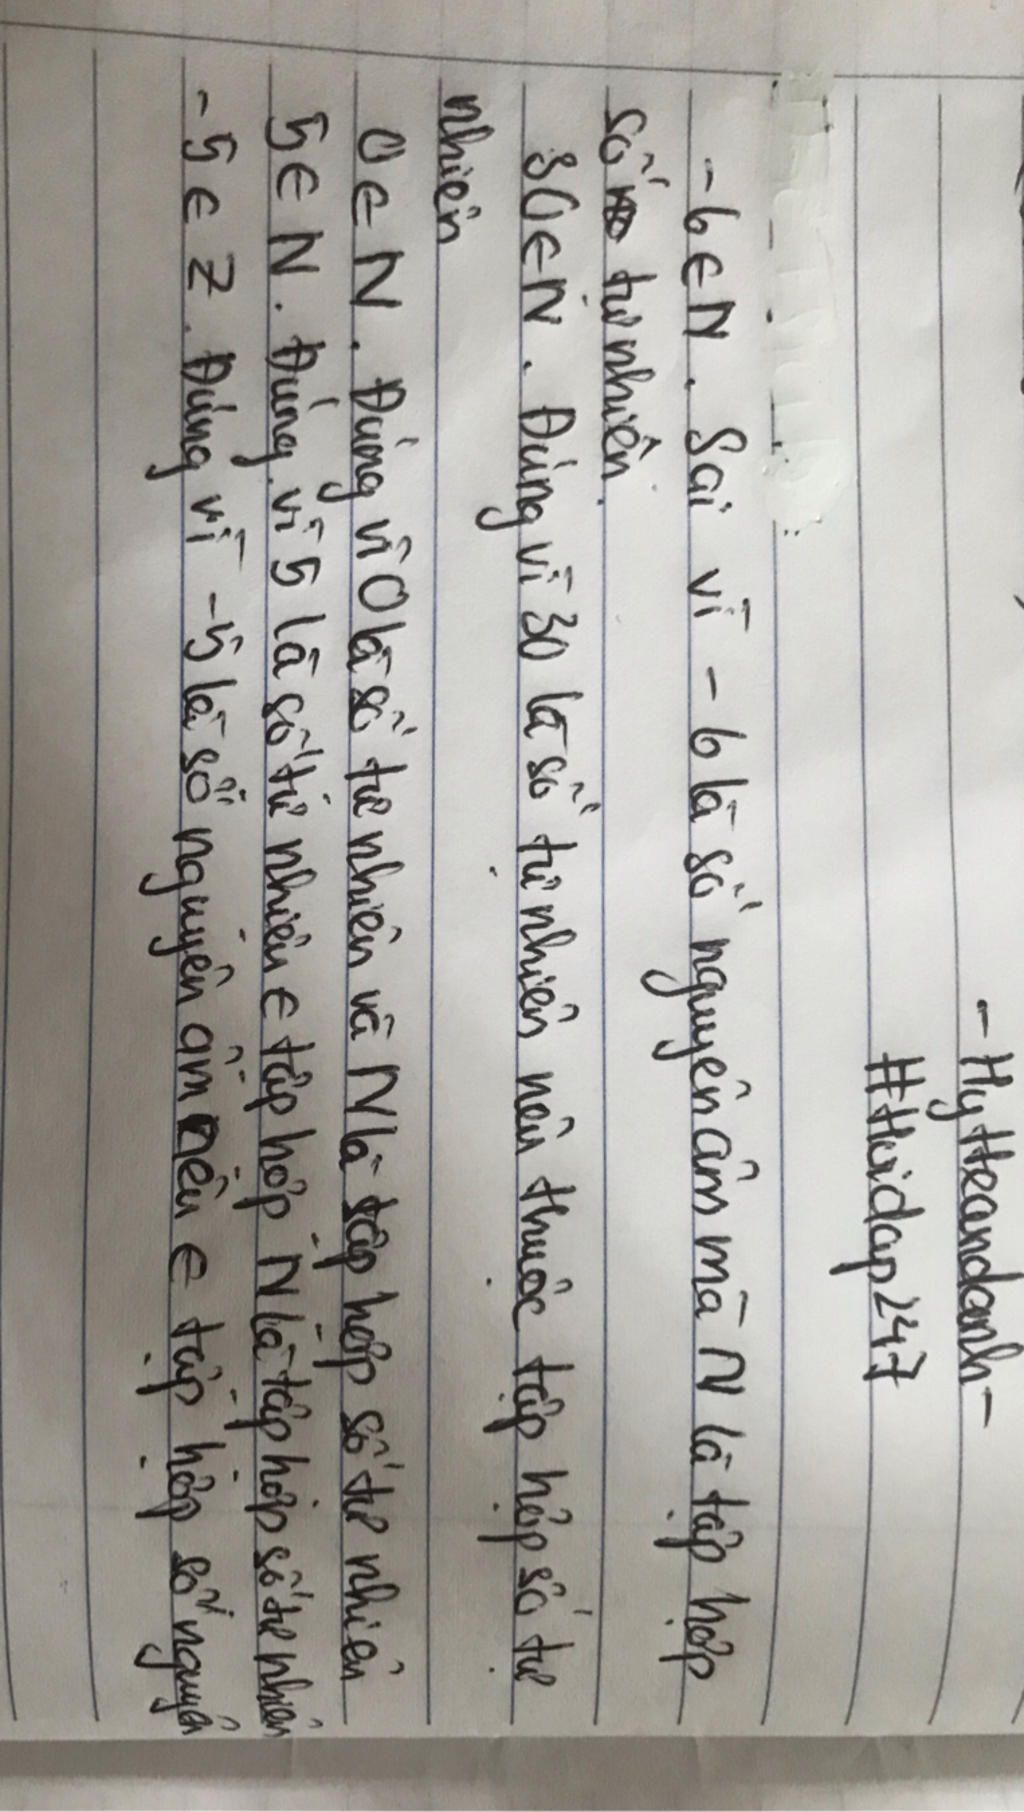 - HyHeandanh -
#Hoidap247
- 6 ∈ N. Sai vì - 6 là số nguyên âm mà N là tập hợp
số tự nhiên.
30 ∈ N. Đúng vì 30 là số tự nhiên nên thuộc tập hợp số tự
nhiên
0 ∈ N. Đúng vì 0 là số tự nhiên và N là tập hợp số tự nhiên
5 ∈ N. Đúng vì 5 là số tự nhiên ∈ tập hợp N là tập hợp số tự nhiên
- 5 ∈ Z. Đúng vì -5 là số nguyên âm nên ∈ tập hợp số nguyên